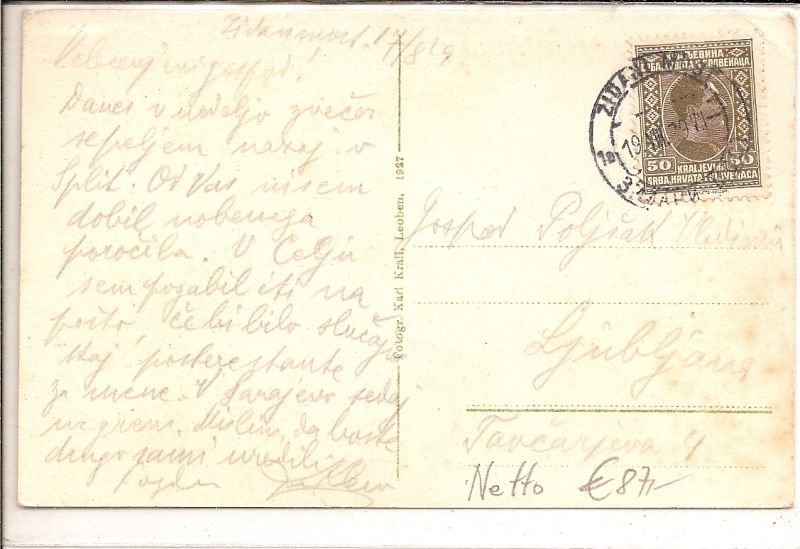 Zidanimost, 17/8 29
Velecenjeni gospod!
Danes v nedeljo zvečer
se peljem nazaj v
Split. Od Vas nisem
dobil nobenega
poročila. V Celju
sem pozabil iti na
pošto, če bi bilo slučaj
kaj posterestante
za mene. V Sarajevo sedaj
ne grem. Mislim, da boste
drugo sami uredili
Fotogr. Karl Krall, Leoben. 1927
КРАЉЕВИНА
50 50
KRALJEVINA
SRBA, HRVATA I SLOVENACA
Gospod Poljšak Vladimir
Ljubljana
Tavčarjeva 4
Netto € 87,-